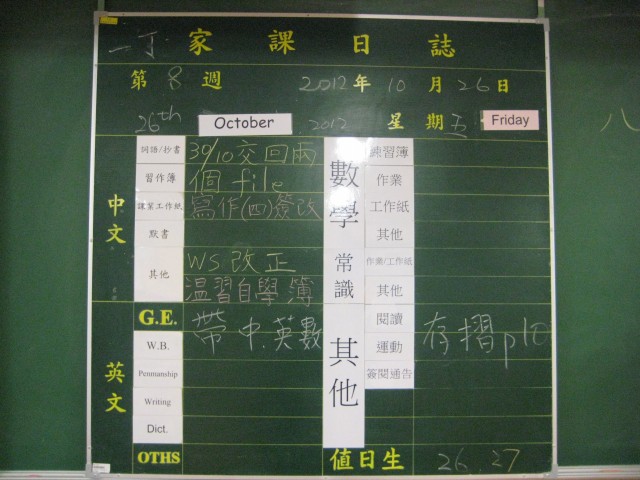 一丁 家課日誌
第 8 週 2012 年 10 月 26 日
26th October 2012 星期 五 Friday
中文
詞語/抄書 30/10交回兩
習作簿 個 file
課業工作紙 寫作(四)簽改
默書
其他 WS 改正
温習自學簿
數學
練習簿
作業
工作紙
其他
常識
作業/工作紙
其他
英文
G.E. 帶中.英數
W.B.
Penmanship
Writing
Dict.
OTHS
其他
閱讀
運動 存摺p10
簽閱通告
值日生 26.27
八